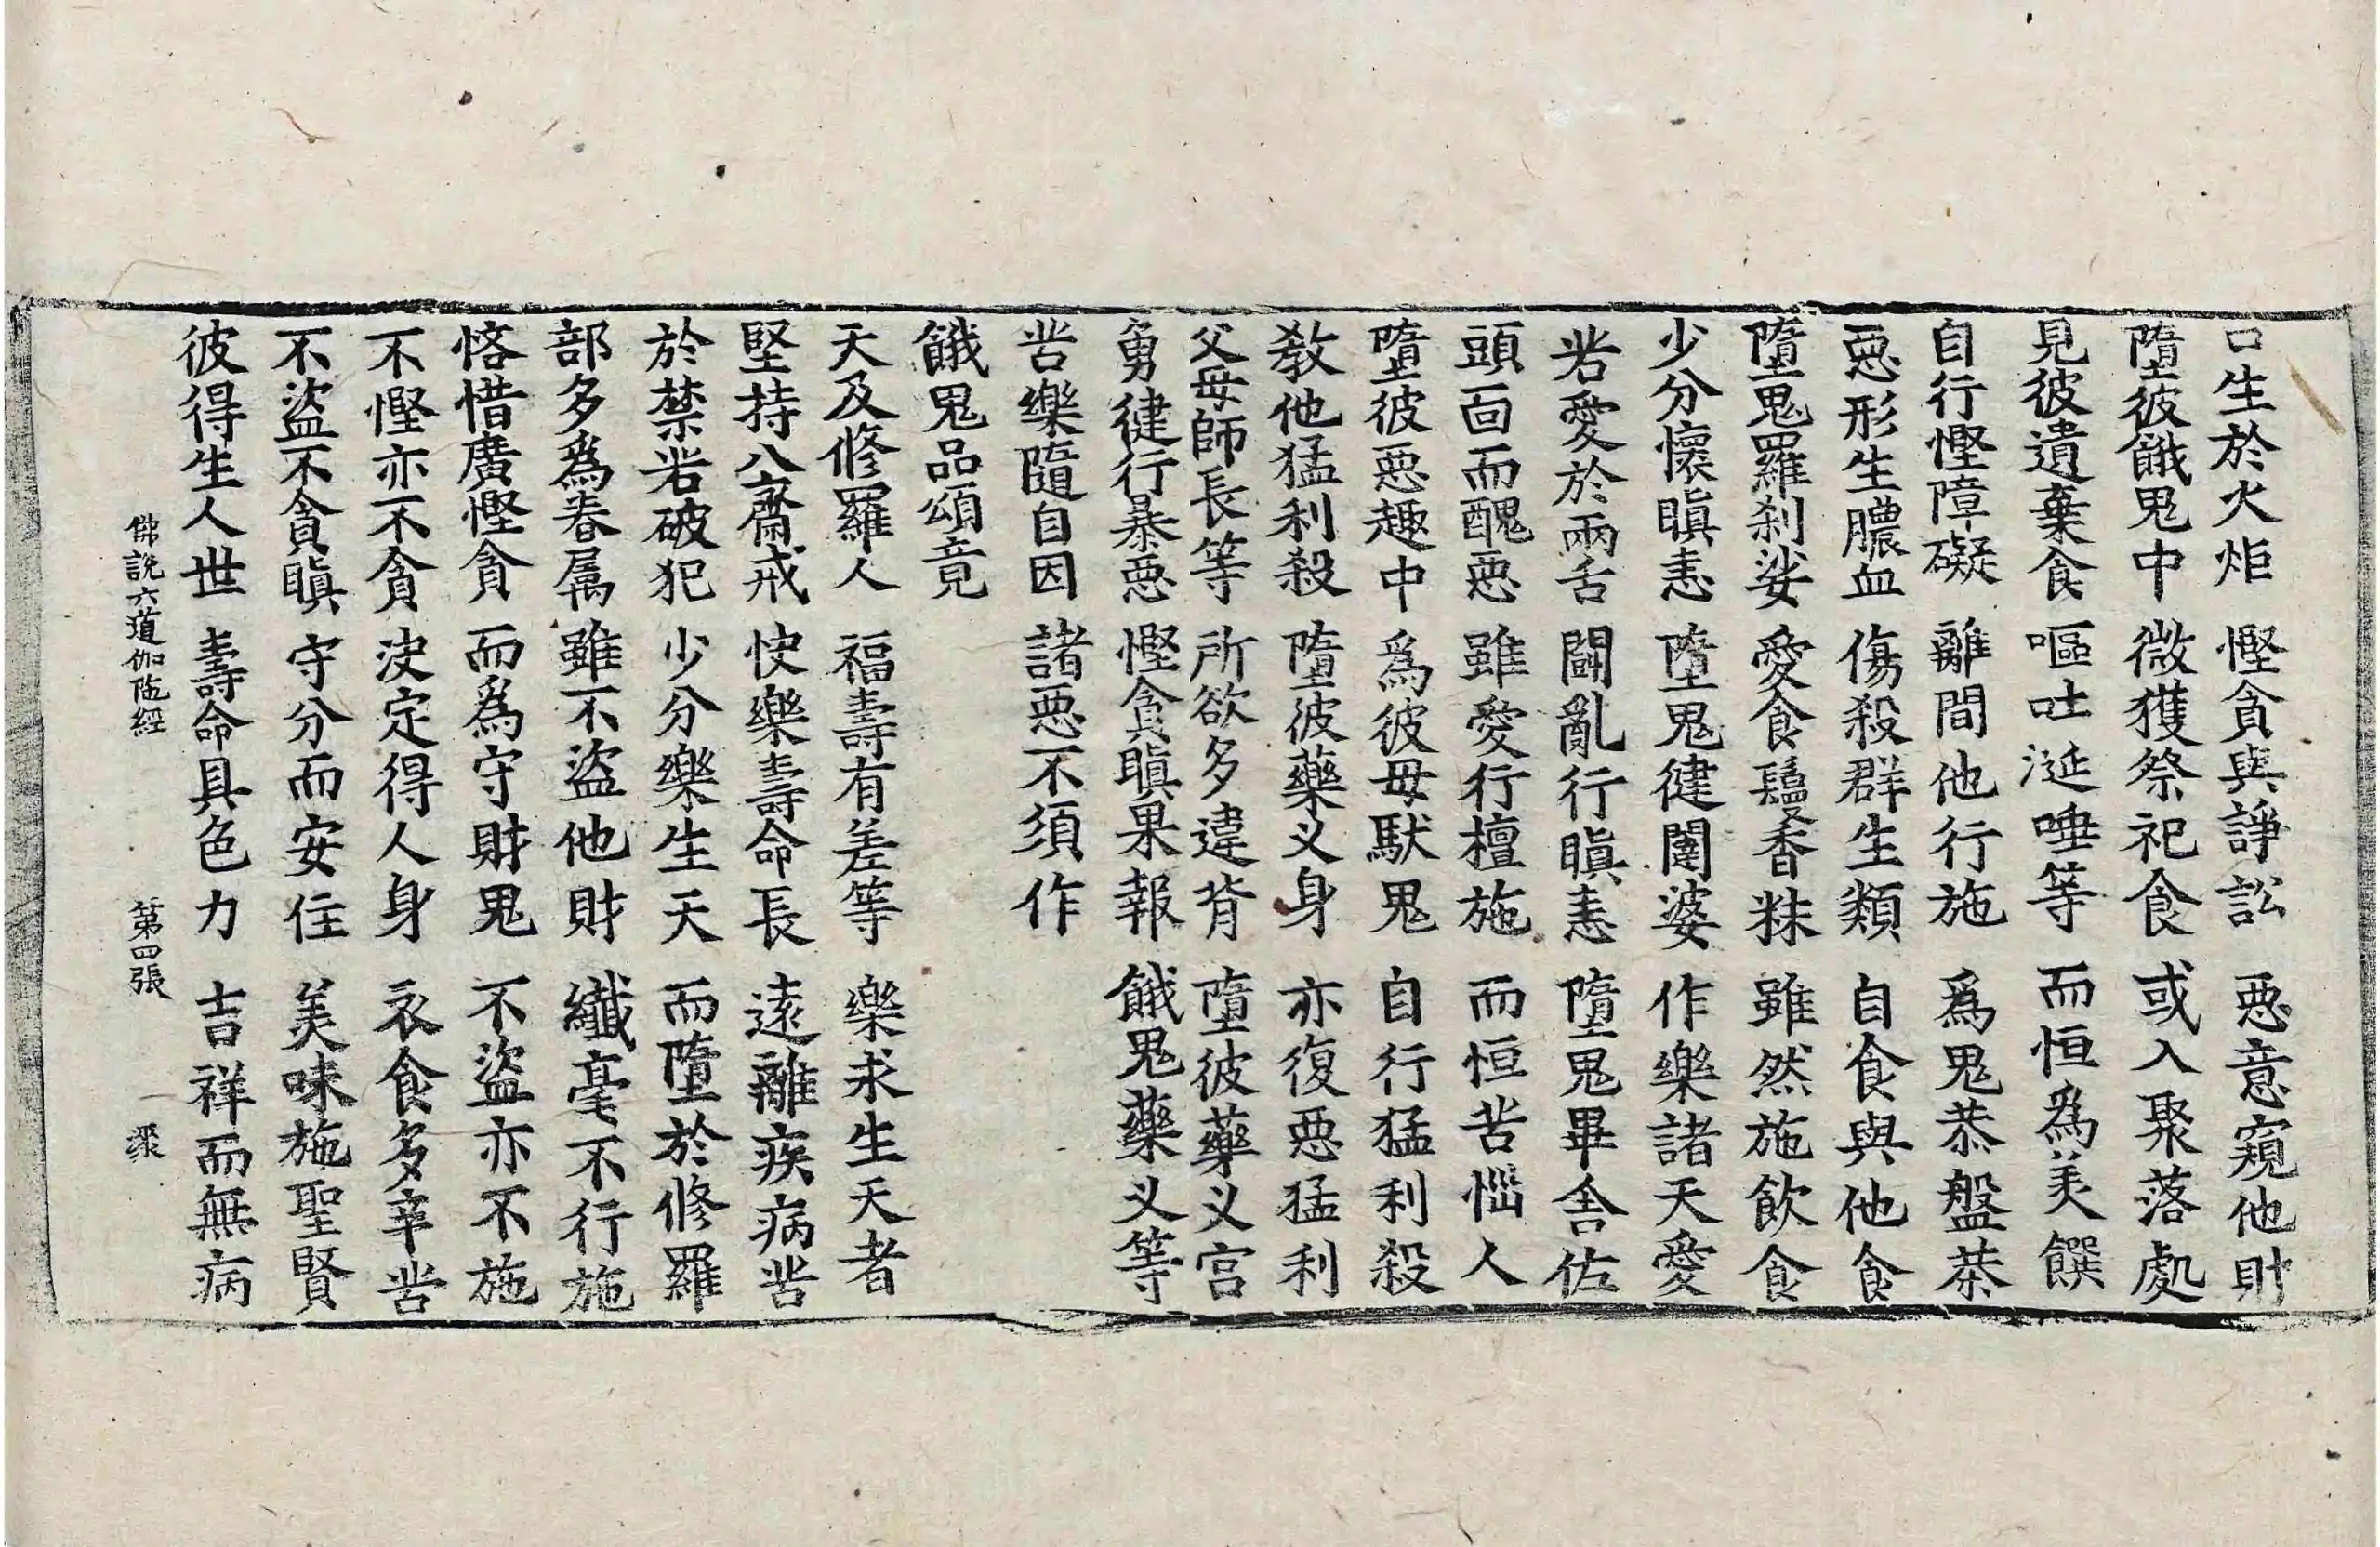 口生於火炬 慳貪與諍訟 惡意窺他財
墮彼餓鬼中 微獲祭祀食 或入聚落處
見彼遺棄食 嘔吐涎唾等 而恒為美饌
自行慳障礙 離間他行施 為鬼恭盤茶
惡形生膿血 傷殺群生類 自食與他食
墮鬼羅刹娑 愛食鬘香粖 雖然施飲食
少分懷瞋恚 墮鬼健闥婆 作樂諸天愛
若愛於兩舌 鬪亂行瞋恚 墮鬼畢舍佐
頭面而醜惡 雖愛行檀施 而恒苦惱人
墮彼惡趣中 為彼毋䭾鬼 自行猛利殺
教他猛利殺 墮彼藥义身 亦復惡猛利
父母師長等 所欲多違背 墮彼藥义宮
勇健行暴惡 慳貪瞋果報 餓鬼藥义等
苦樂隨自因 諸惡不須作
餓鬼品頌竟
天及修羅人 福壽有差等 樂求生天者
堅持八齋戒 快樂壽命長 遠離疾病苦
於禁若破犯 少分樂生天 而墮於修羅
部多為眷属 雖不盜他財 纖毫不行施
悋惜廣慳貪 而為守財鬼 不盜亦不施
不慳亦不貪 决定得人身 衣食多辛苦
不盜不貪瞋 守分而安住 美味施聖賢
彼得生人世 壽命具色力 吉祥而無病
佛說六道伽陁經 第四張